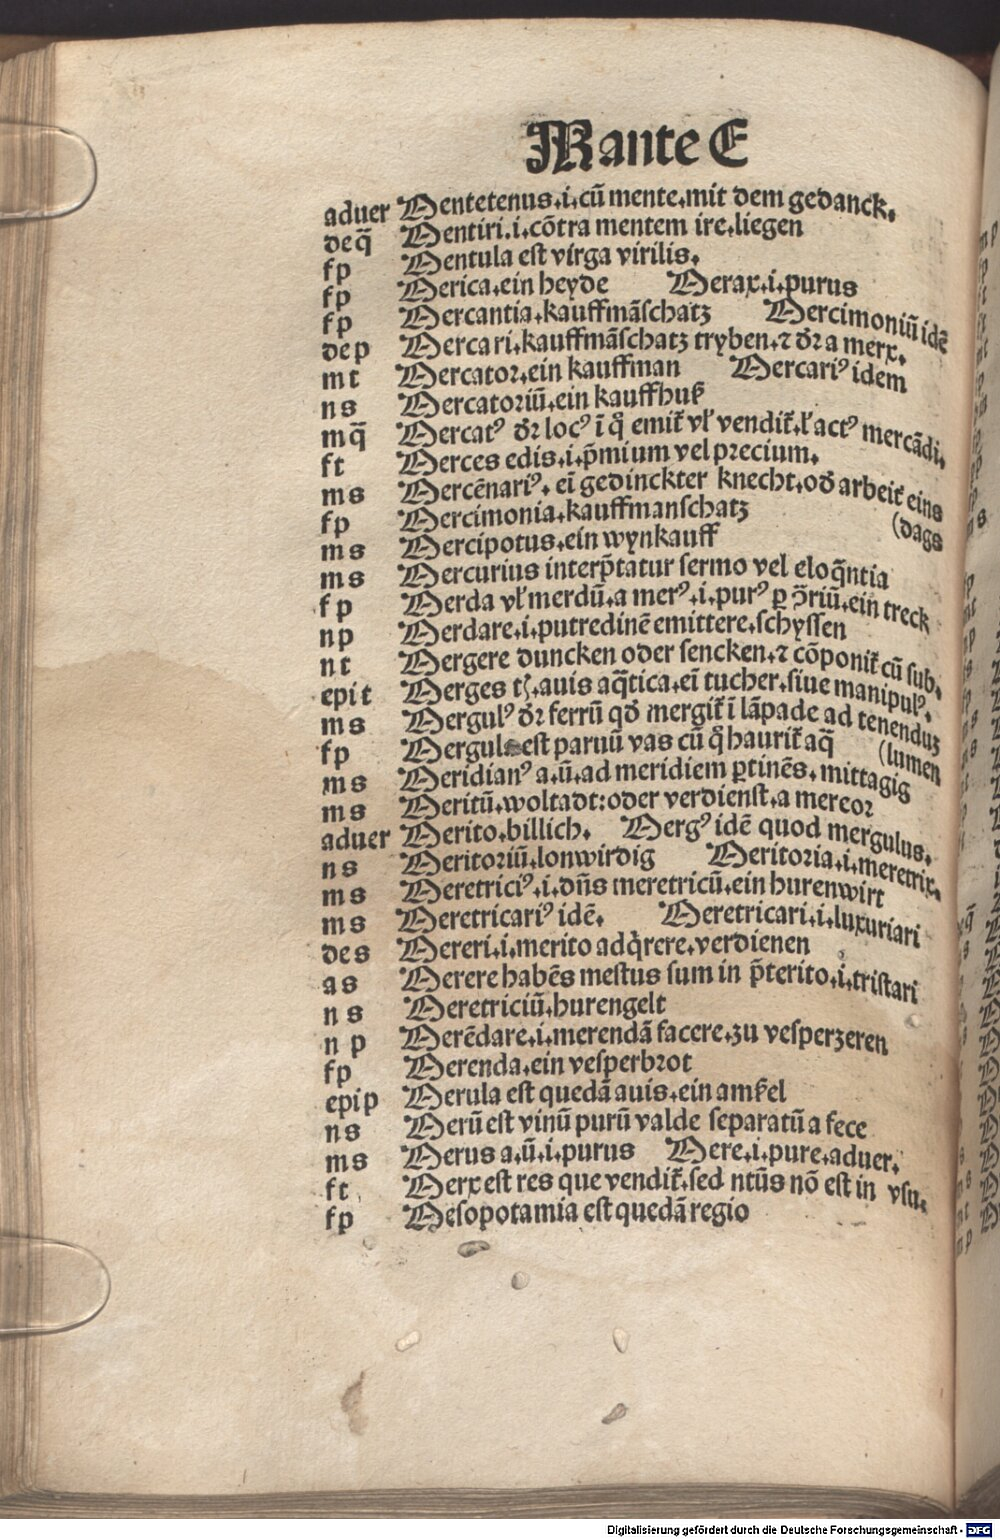 M ante E
aduer Mentetenus.i.cū mente.mit dem gedanck.
deq̄ Mentiri.i.cōtra mentem ire.liegen
fp Mentula est virga virilis.
fp Merica.ein heyde Merax.i.purus
fp Mercantia.kauffmāschatz Mercimoniū idē
dep Mercari.kauffmāschatz tryben.⁊ dr̄ a merx.
mt Mercator.ein kauffman Mercariꝰ idem
ns Mercatoriū.ein kauffhuß
mq̄ Mercatꝰ dr̄ locꝰ ī q̊ emit᷑ vl̓ vendit᷑.l̓ actꝰ mercādi.
ft Merces edis.i.p̄mium vel precium.
ms Mercēnariꝰ. eī gedinckter knecht.od̓ arbeit᷑ eins
fp Mercimonia.kauffmanschatz (dags
ms Mercipotus.ein wynkauff
ms Mercurius interp̄tatur sermo vel eloq̄ntia
fp Merda vl̓ merdū.a merꝰ.i.purꝰ ꝑ ↄ̄riū.ein treck
np Merdare.i.putredinē emittere.schyssen
nt Mergere duncken oder sencken.⁊ cōponit᷑ cū sub.
epit Merges tꝭ.auis aq̄tica.eī tucher.siue manipulꝰ.
ms Mergulꝰ dr̄ ferrū qd̓ mergit᷑ ī lāpade ad tenenduꝫ
fp Mergula est paruū vas cū q̊ haurit᷑ aq̄ (lumen
ms Meridianꝰ a.ū.ad meridiem ꝑtinēs.mittagig
ms Meritū.woltadt:oder verdienst.a mereor
aduer Merito.billich. Mergꝰ idē quod mergulus.
ns Meritoriū.lonwirdig Meritoria.i.meretrix.
ms Meretriciꝰ.i.dn̄s meretricū.ein hurenwirt
ms Meretricariꝰ idē. Meretricari.i.luxuriari
des Mereri.i.merito adq̇rere.verdienen
as Merere habēs mestus sum in p̄terito.i.tristari
ns Meretriciū.hurengelt
np Merēdare.i.merendā facere.zu vesperzeren
fp Merenda.ein vesperbrot
epip Merula est quedā auis.ein amßel
ns Merū est vinū purū valde separatū a fece
ms Merus a.ū.i.purus Mere.i.pure.aduer.
ft Merx est res que vendit᷑.sed ntūs nō est in vsu.
fp Mesopotamia est quedā regio
Digitalisierung gefördert durch die Deutsche Forschungsgemeinschaft - DFG